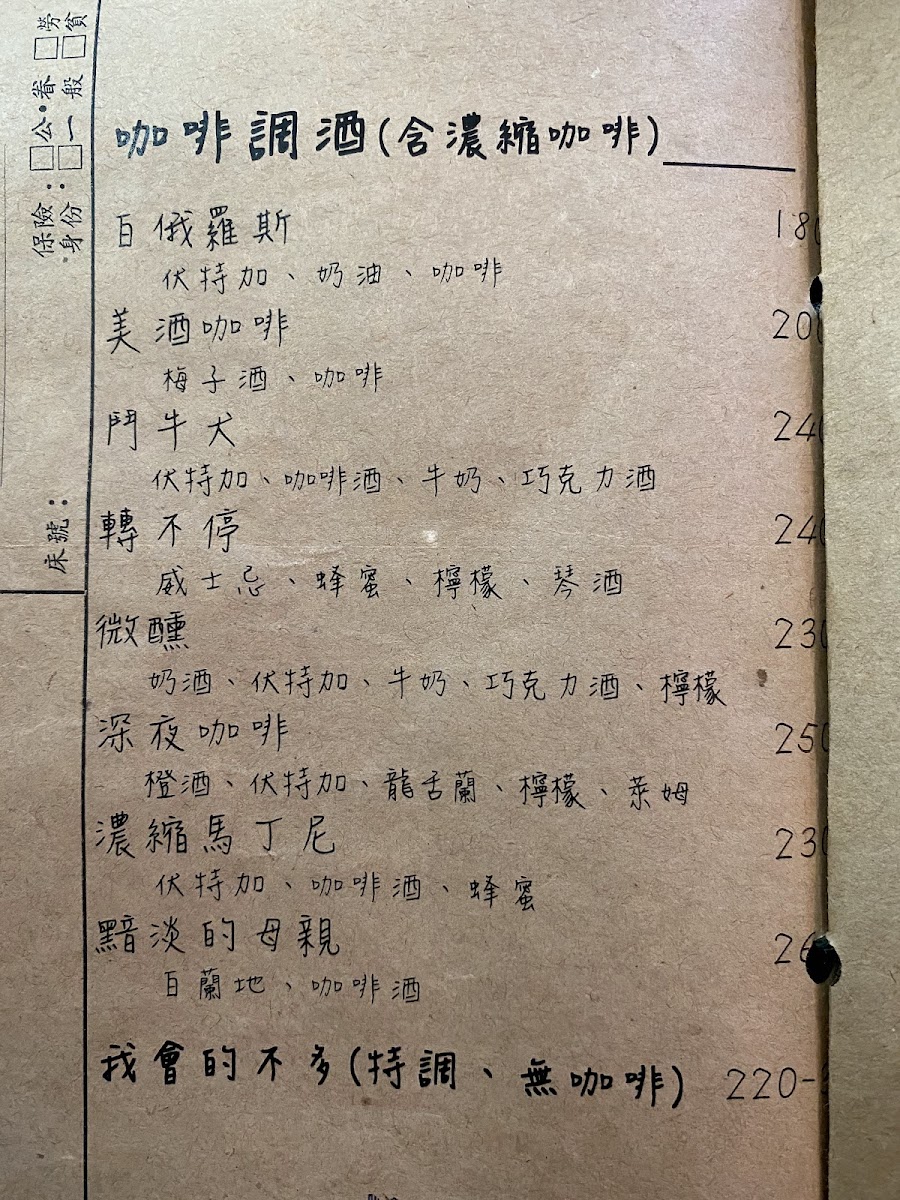 保險：□公•眷 □勞
身份：□一般 □貧
床號：
咖啡調酒(含濃縮咖啡)
白俄羅斯 180
伏特加、奶油、咖啡
美酒咖啡 200
梅子酒、咖啡
鬥牛犬 240
伏特加、咖啡酒、牛奶、巧克力酒
轉不停 240
威士忌、蜂蜜、檸檬、琴酒
微醺 230
奶酒、伏特加、牛奶、巧克力酒、檸檬
深夜咖啡 250
橙酒、伏特加、龍舌蘭、檸檬、萊姆
濃縮馬丁尼 230
伏特加、咖啡酒、蜂蜜
黯淡的母親 26
白蘭地、咖啡酒
我會的不多(特調、無咖啡) 220-